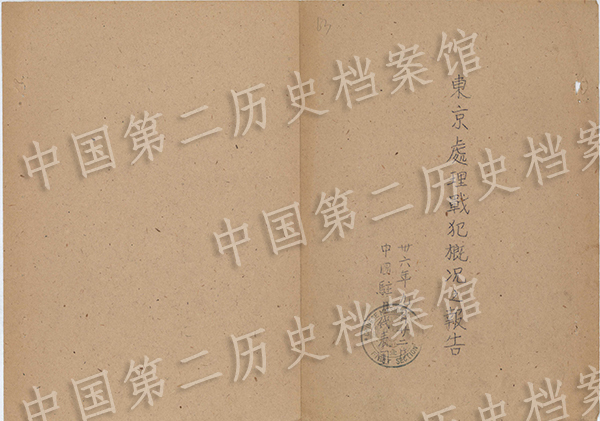 63
東京處理戰犯概況之報告
卅六年
中國駐日代表團
中国第二历史档案馆
中国第二历史档案馆
中国第二历史档案馆
中国第二历史档案馆